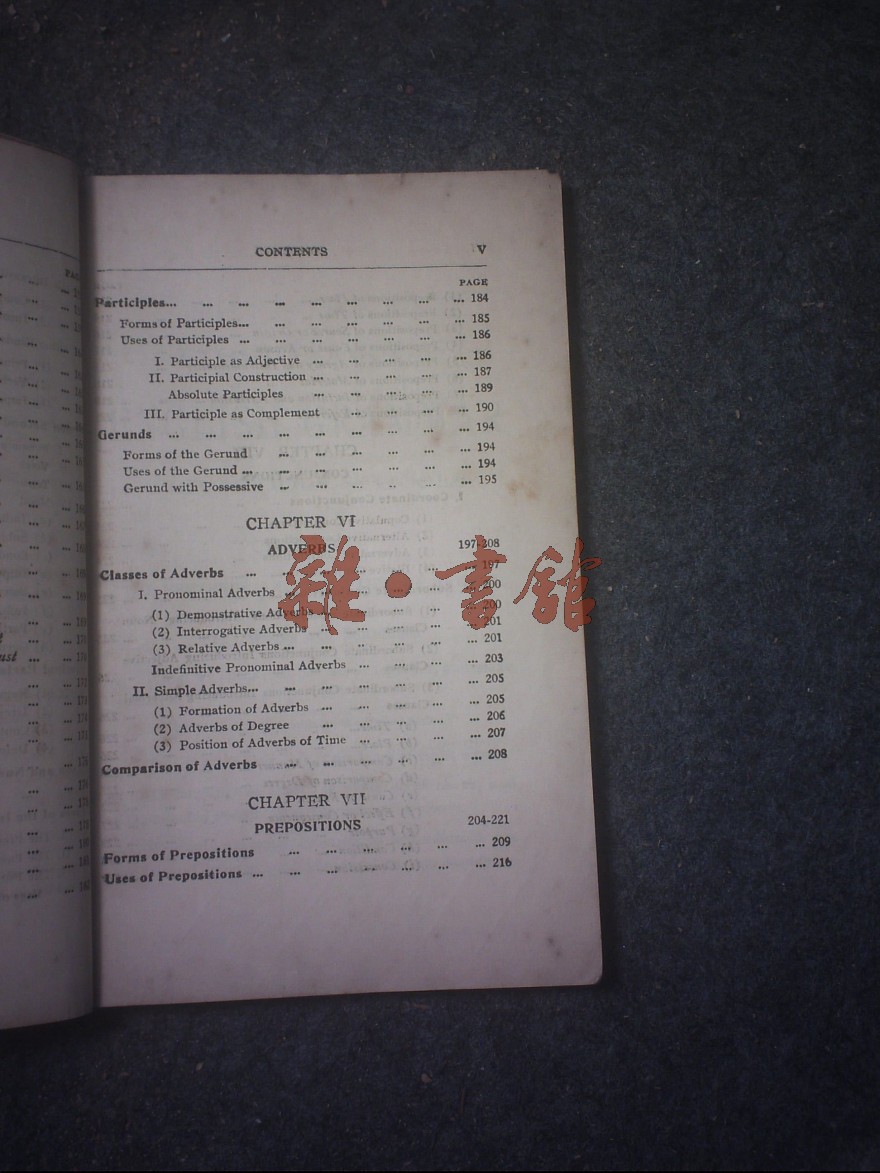 CONTENTS V
PAGE
Participles... ... ... ... ... ... ... ... ... 184
Forms of Participles... ... ... ... ... ... ... 185
Uses of Participles ... ... ... ... ... ... ... 186
I. Participle as Adjective ... ... ... ... ... 186
II. Participial Construction ... ... ... ... ... 187
Absolute Participles ... ... ... ... ... 189
III. Participle as Complement ... ... ... ... 190
Gerunds ... ... ... ... ... ... ... ... ... 194
Forms of the Gerund ... ... ... ... ... ... 194
Uses of the Gerund ... ... ... ... ... ... ... 194
Gerund with Possessive ... ... ... ... ... ... 195
CHAPTER VI
ADVERBS 197-208
Classes of Adverbs ... ... ... ... ... ... ... 197
I. Pronominal Adverbs ... ... ... ... ... ... 200
(1) Demonstrative Adverbs ... ... ... ... ... 200
(2) Interrogative Adverbs ... ... ... ... ... 201
(3) Relative Adverbs ... ... ... ... ... ... 201
Indefinitive Pronominal Adverbs ... ... ... ... 203
II. Simple Adverbs... ... ... ... ... ... ... 205
(1) Formation of Adverbs ... ... ... ... ... 205
(2) Adverbs of Degree ... ... ... ... ... 206
(3) Position of Adverbs of Time ... ... ... ... 207
Comparison of Adverbs ... ... ... ... ... ... 208
CHAPTER VII
PREPOSITIONS 204-221
Forms of Prepositions ... ... ... ... ... ... 209
Uses of Prepositions ... ... ... ... ... ... ... 216
雜·書館